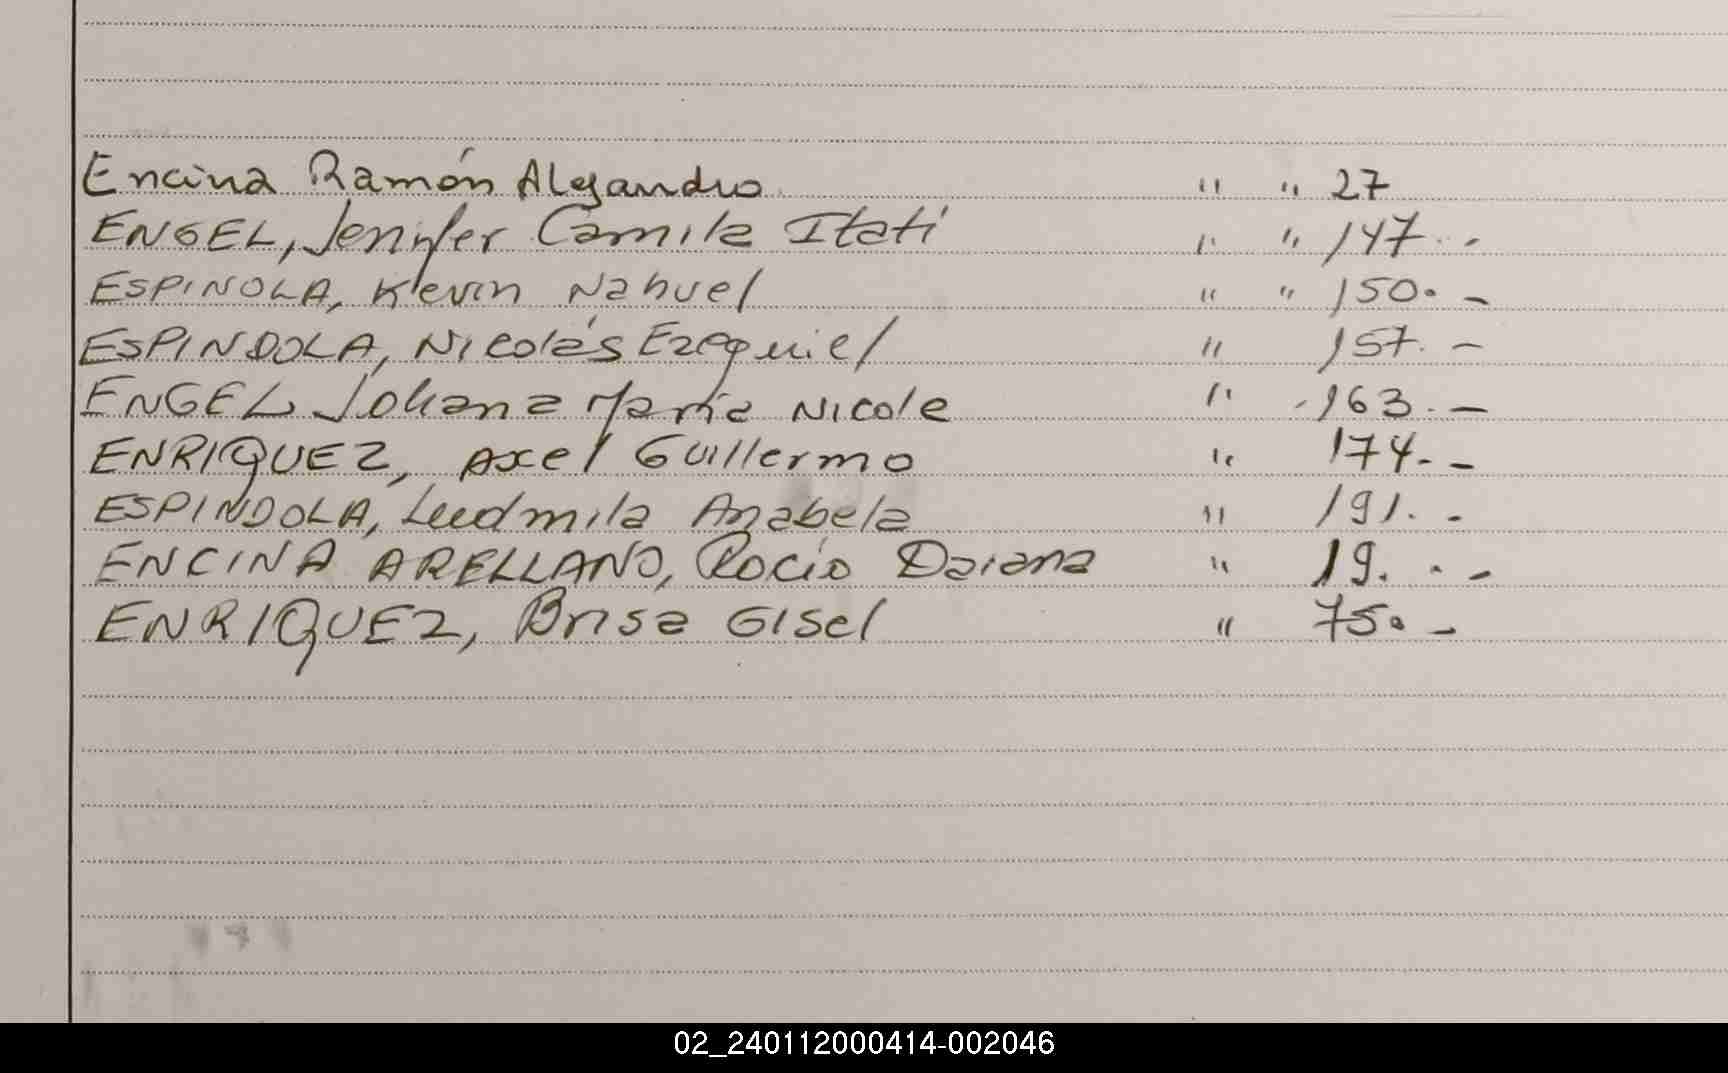 Encina Ramón Alejandro " " 27
ENGEL, Jenifer Camila Itatí " " 147. -
ESPINOLA, Kevin Nahuel " " 150. -
ESPINDOLA, Nicolás Ezequiel " 157. -
ENGEL Johana María Nicole " 163. -
ENRIQUEZ, Axel Guillermo " 174. -
ESPINDOLA, Ludmila Anabela " 191. -
ENCINA ARELLANO, Rocío Daiana " 19. . -
ENRIQUEZ, Brisa Gisel " 75. -
02_240112000414-002046